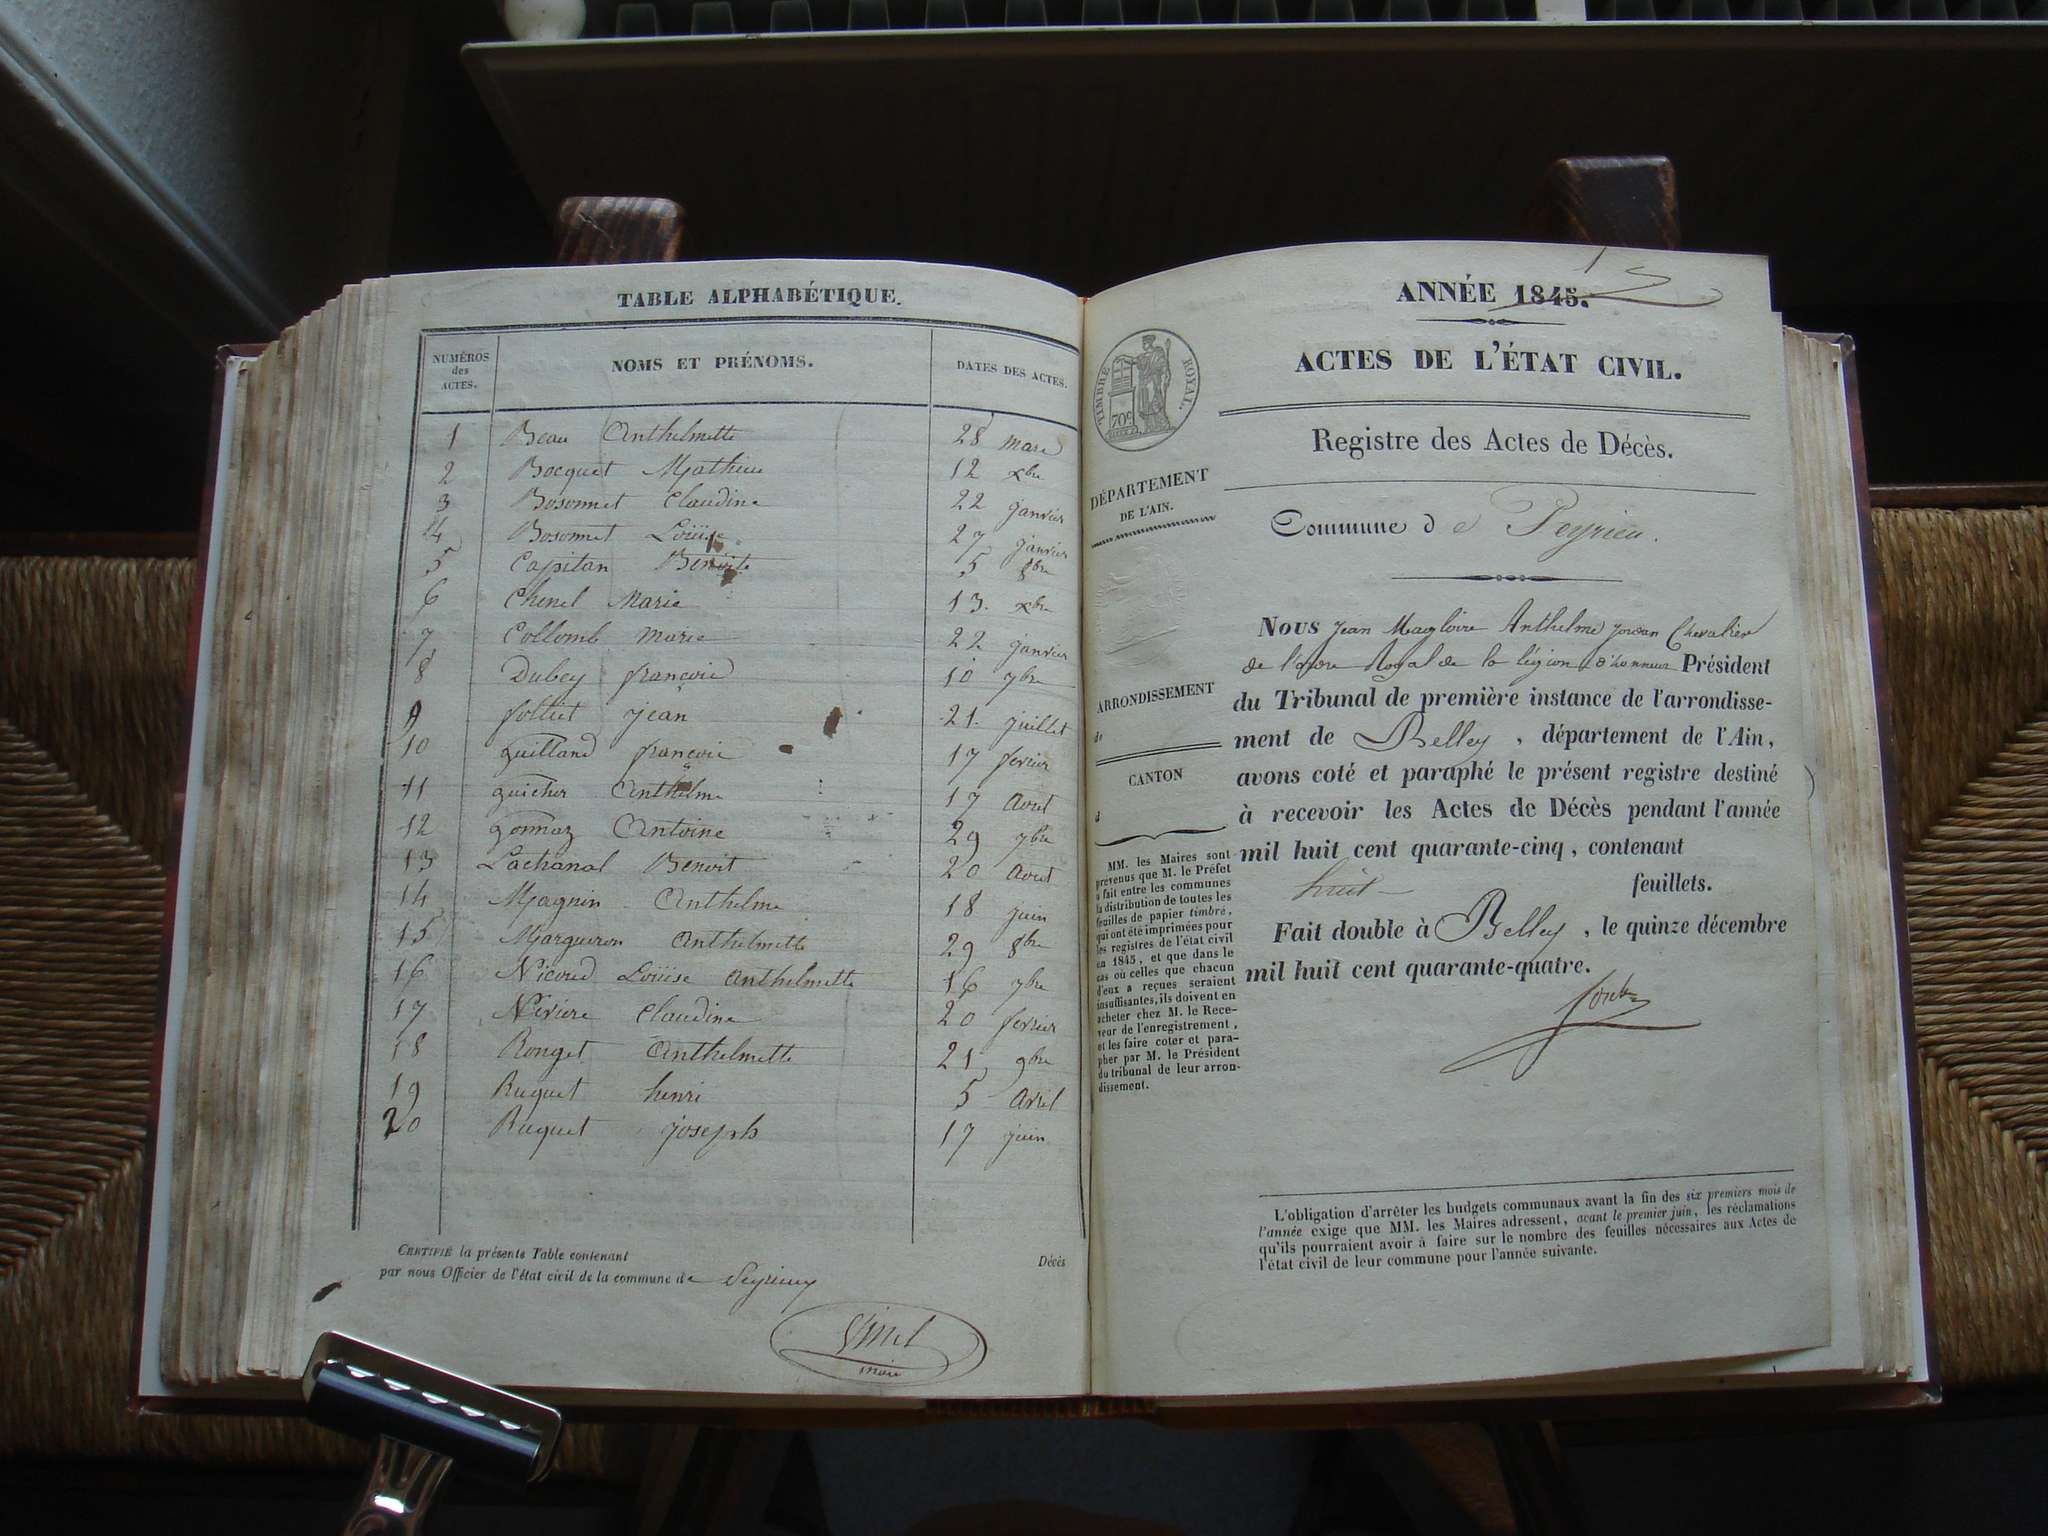 TABLE ALPHABÉTIQUE.
NUMÉROS des ACTES.
NOMS ET PRÉNOMS.
DATES DES ACTES.
1 Beau Anthelmette 28 mars
2 Bocquet Mathieu 12 xbre
3 Bosonnet Claudine 22 janvier
4 Bosonnet Loüise 27 janvier
5 Capitan Benoite 5 8bre
6 Chenel Marie 13. xbre
7 Collomb Marie 22 janvier
8 Dubey françois 10 7bre
9 folliet jean 21. juillet
10 guilland françois 17 fevrier
11 guicher Anthelme 17 Aout
12 gonnaz Antoine 29 7bre
13 Lachanal Benoit 20 Aout
14 Magnin Anthelme 18 juin
15 Margueron Anthelmette 29 8bre
16 Nicoud Loüise Anthelmette 16 7bre
17 Niviere Claudine 20 fevrier
18 Ronget Anthelmette 21 9bre
19 Ruquet henri 5 Avril
20 Ruquet joseph 17 juin
CERTIFIÉ la présente Table contenant Décès
par nous Officier de l'état civil de la commune de Peyrieux
maire
ANNÉE 1845.
ACTES DE L'ÉTAT CIVIL.
TIMBRE ROYAL.
70c
Registre des Actes de Décès.
DÉPARTEMENT
DE L'AIN.
Commune de Peyrieu.
ARRONDISSEMENT
de
CANTON
d
MM. les Maires sont
prévenus que M. le Préfet
a fait entre les communes
la distribution de toutes les
feuilles de papier timbré,
qui ont été imprimées pour
les registres de l'état civil
en 1845, et que dans le
cas où celles que chacun
d'eux a reçues seraient
insuffisantes, ils doivent en
acheter chez M. le Rece-
veur de l'enregistrement,
et les faire coter et para-
pher par M. le Président
du tribunal de leur arron-
dissement.
NOUS Jean Magloire Anthelme Jordan Chevalier
de l'ordre Royal de la légion d'honneur Président
du Tribunal de première instance de l'arrondisse-
ment de Belley, département de l'Ain,
avons coté et paraphé le présent registre destiné
à recevoir les Actes de Décès pendant l'année
mil huit cent quarante-cinq, contenant
huit feuillets.
Fait double à Belley, le quinze décembre
mil huit cent quarante-quatre.
L'obligation d'arrêter les budgets communaux avant la fin des six premiers mois de
l'année exige que MM. les Maires adressent, avant le premier juin, les réclamations
qu'ils pourraient avoir à faire sur le nombre des feuilles nécessaires aux Actes de
l'état civil de leur commune pour l'année suivante.